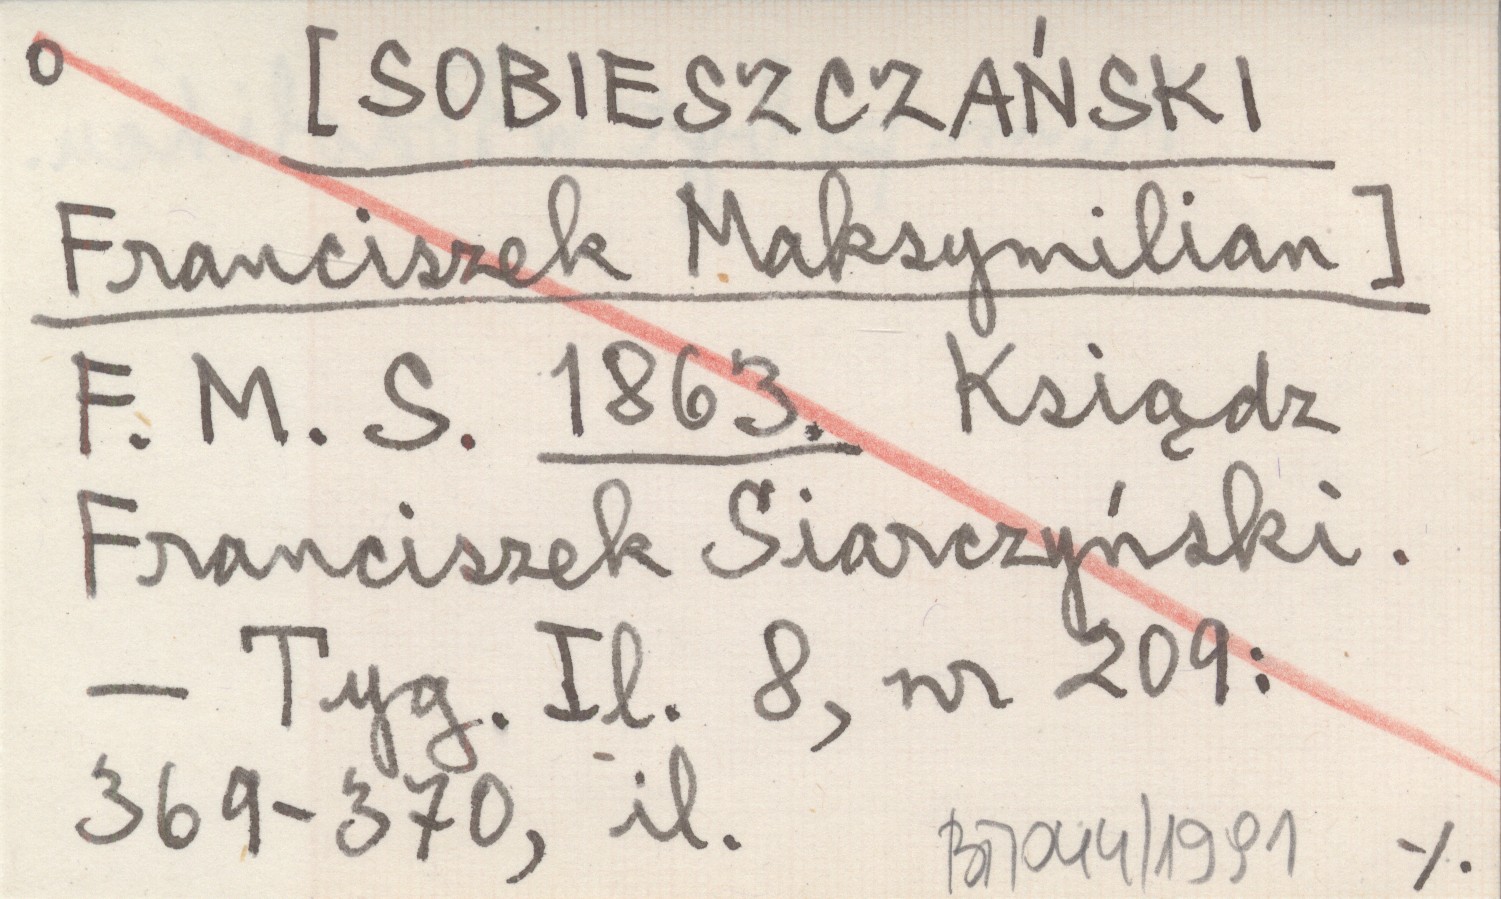 o [SOBIESZCZAŃSKI
Franciszek Maksymilian]
F. M. S. 1863. Ksiądz
Franciszek Siarczyński.
— Tyg. Il. 8, nr 209:
369-370, il.
/1991 -/.